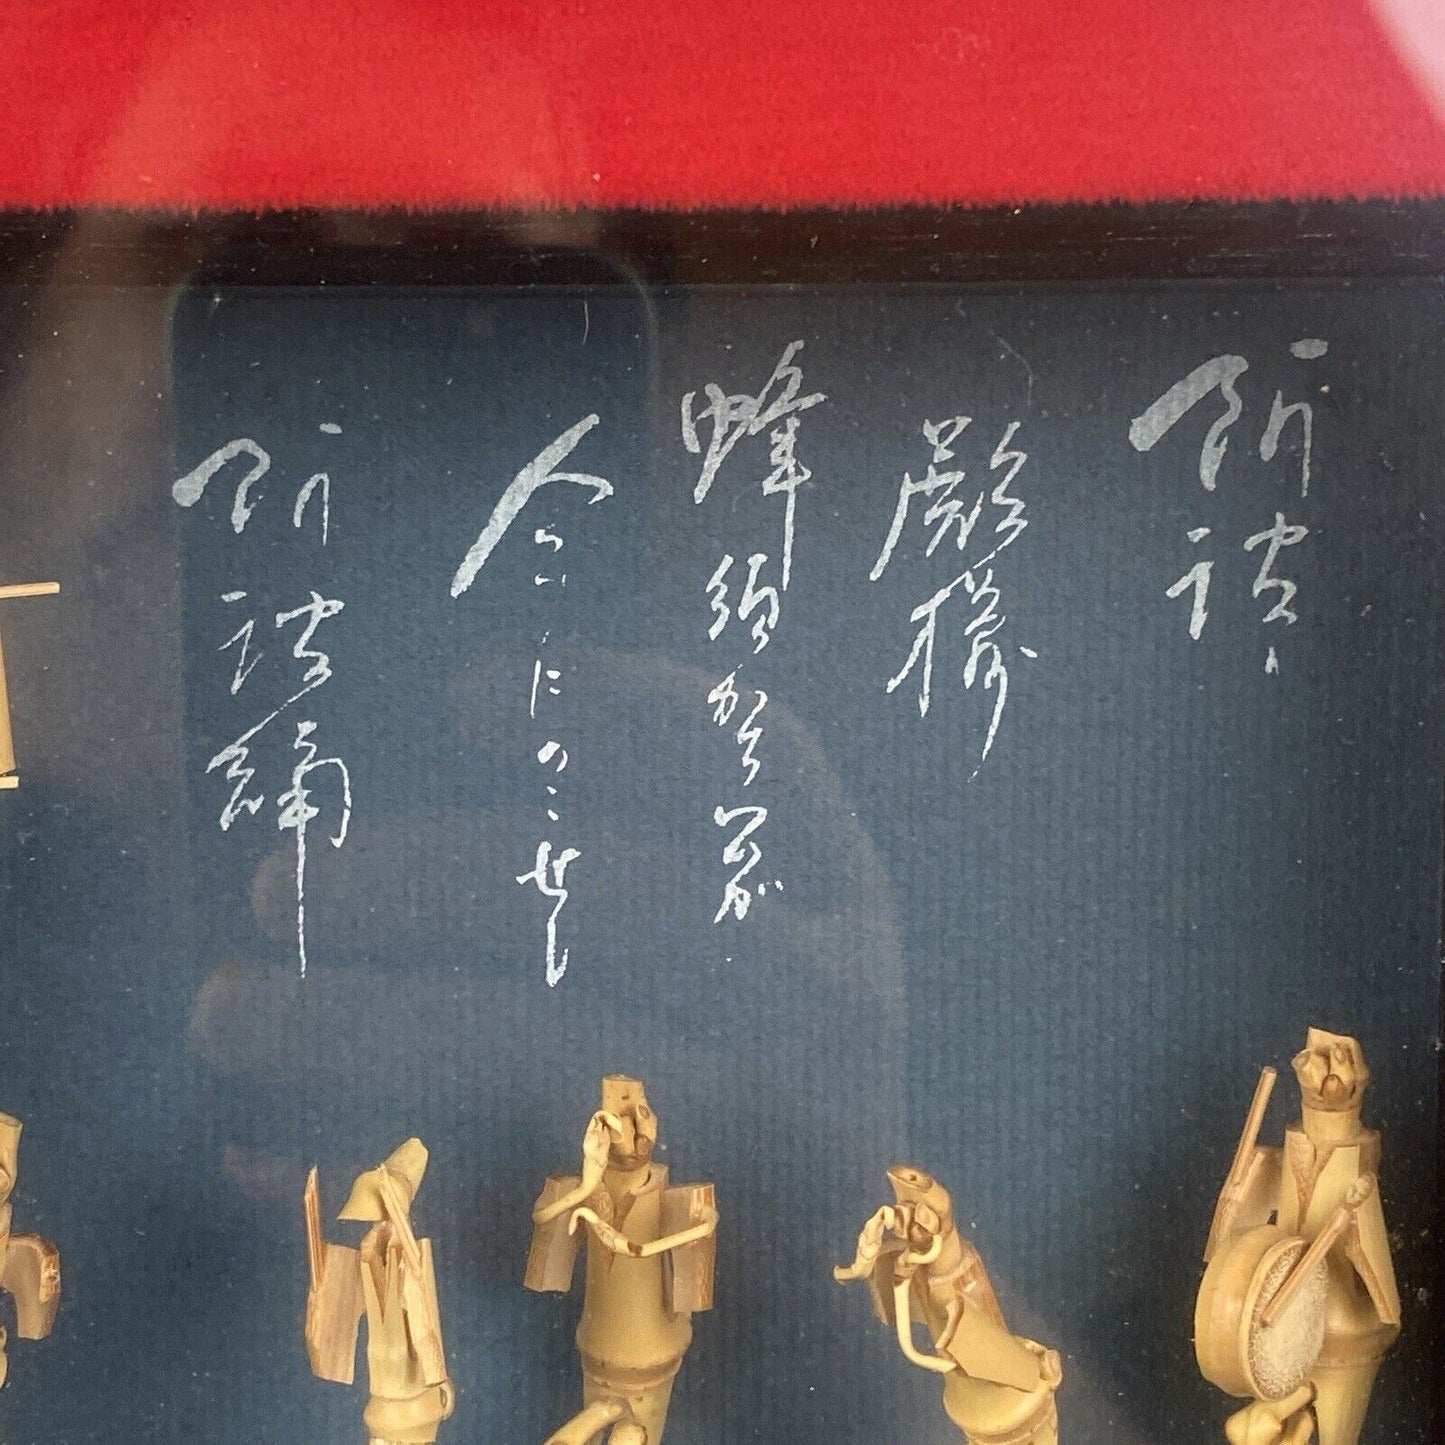 阿波
殿様
蜂須賀公が
今にのこせし
阿波踊